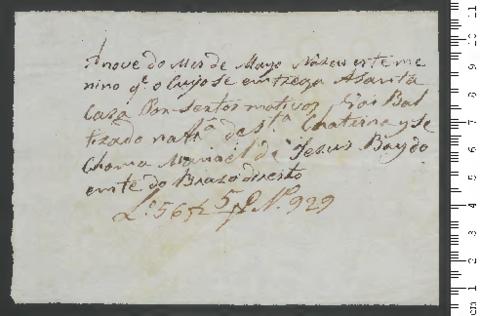 A nove do Mes de Mayo Naseu este me
nino q.e o Cujo se emtrega A Santa
Caza Por sertos motivos, Foi Bal
tizado na Fr.a de S.ta Chaterina y se
Choma Manoel de Jesus Bay do
emte do Brazo direito
L.o 56 f 5 N.o 929
1 2 3 4 5 6 7 8 9 10 11
cm